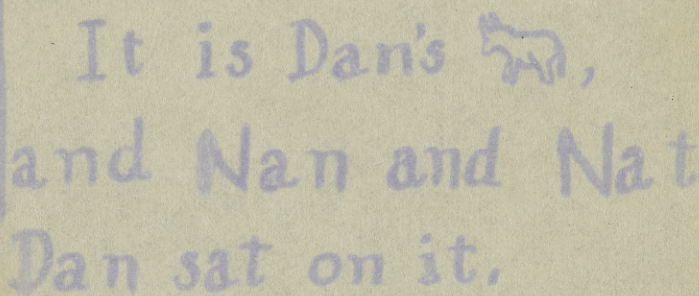 It is Dan's ,
and Nan and Nat
Dan sat on it.